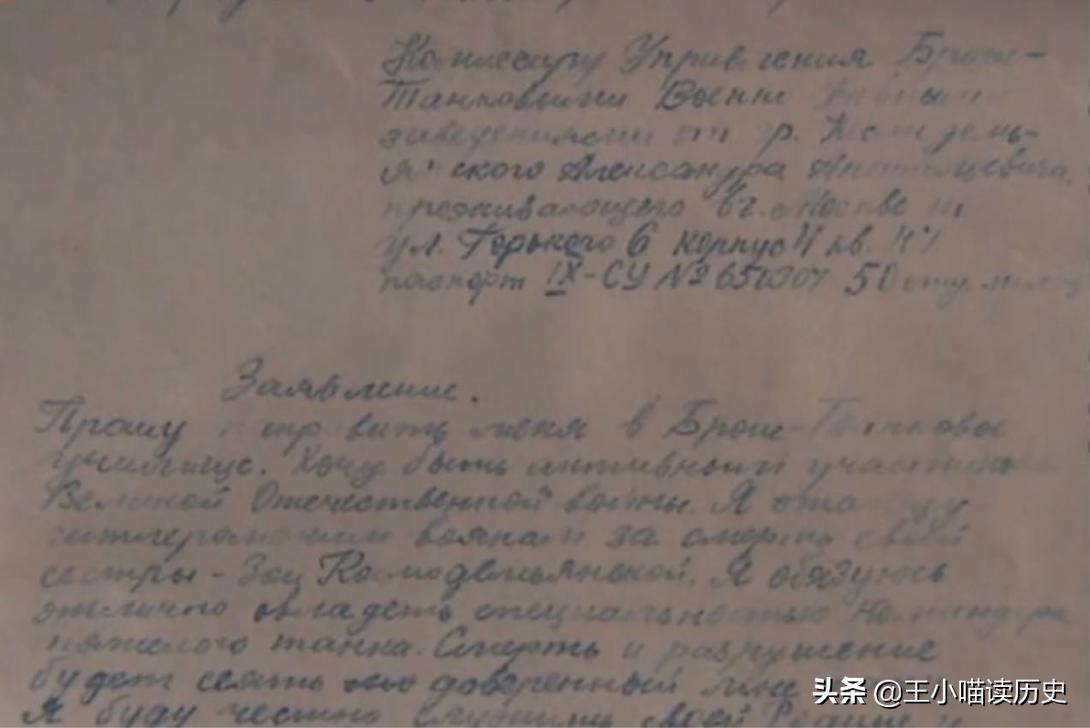 Комиссару Управления Броне-
Танковыми Военн
заведениями от гр. Космодемь-
янского Александра Анатольевича,
проживающего в г. Москве
ул. Горького 6 корпус 4 кв.
паспорт IX-СУ № 50
Заявление.
Прошу направить меня в Броне-Танковое
училище. Хочу быть активным участником
Великой Отечественной войны. Я отомщу
гитлеровским воякам за смерть своей
сестры - Зои Космодемьянской. Я обязуюсь
отлично овладеть специальностью командира
тяжелого танка. Смерть и разрушение
будет сеять доверенный мне
Я буду честно служить своей
头条 @王小喵读历史